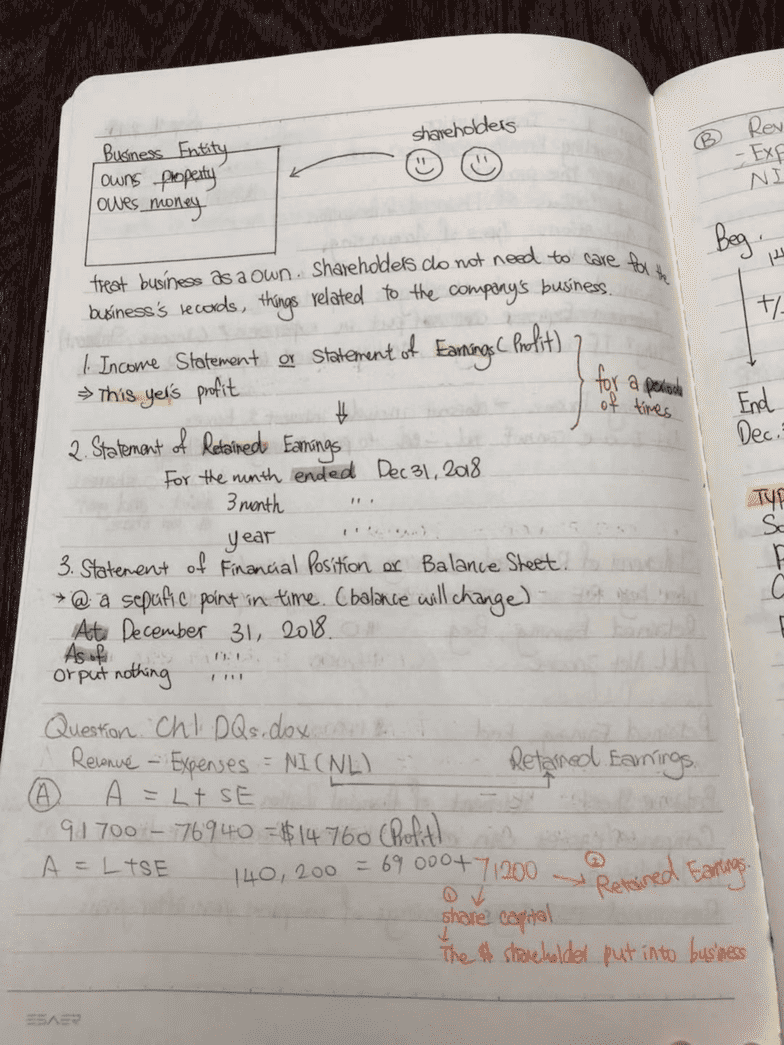 shareholders
Business Entity
owns property
owes money
treat business as a own. shareholders do not need to care for the
business's records, things related to the company's business.
1. Income Statement or Statement of Earnings (Profit)
⇒ This yer's profit
for a period
of times
2. Statement of Retained Earnings
For the month ended Dec 31, 2018
3 month " .
year
3. Statement of Financial Position or Balance Sheet.
→ @ a sepcific point in time. (balance will change)
At December 31, 2018.
As of " "
or put nothing " "
Question Ch1 DQs.dox
Revenue - Expenses = NI (NL) Retained Earnings.
Ⓐ A = L + SE
91 700 - 76940 = $14 760 (Profit)
A = L + SE 140,200 = 69 000 + 71200 → ② Retained Earnings.
① ↓
share capital
↓
The $ shareholder put into business
ESAER
Ⓑ Rev
- Exp
NI
Beg.
+/-
End
Dec.
TYP